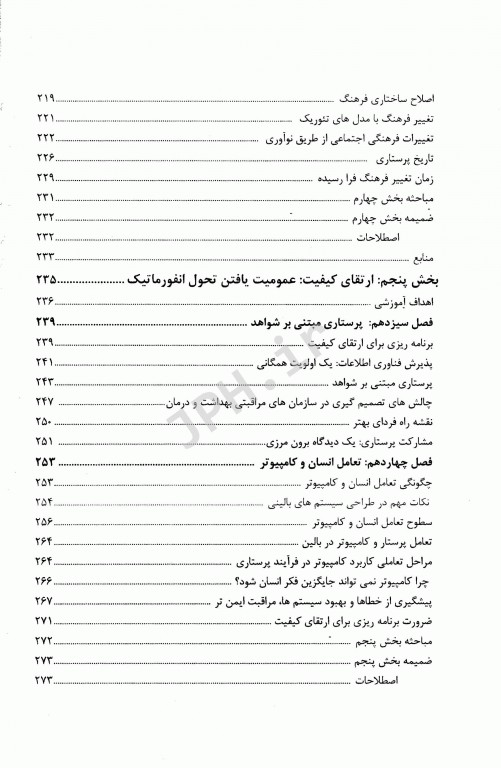 اصلاح ساختاری فرهنگ ........ ۲۱۹
تغییر فرهنگ با مدل های تئوریک ........ ۲۲۱
تغییرات فرهنگی اجتماعی از طریق نوآوری ........ ۲۲۲
تاریخ پرستاری ........ ۲۲۶
زمان تغییر فرهنگ فرا رسیده ........ ۲۲۹
مباحثه بخش چهارم ........ ۲۳۱
ضمیمه بخش چهارم ........ ۲۳۲
اصطلاحات ........ ۲۳۲
منابع ........ ۲۳۳
بخش پنجم: ارتقای کیفیت: عمومیت یافتن تحول انفورماتیک ........ ۲۳۵
اهداف آموزشی ........ ۲۳۶
فصل سیزدهم: پرستاری مبتنی بر شواهد ........ ۲۳۹
برنامه ریزی برای ارتقای کیفیت ........ ۲۳۹
پذیرش فناوری اطلاعات: یک اولویت همگانی ........ ۲۴۱
پرستاری مبتنی بر شواهد ........ ۲۴۳
چالش های تصمیم گیری در سازمان های مراقبتی بهداشت و درمان ........ ۲۴۷
نقشه راه فردای بهتر ........ ۲۵۰
مشارکت پرستاری: یک دیدگاه برون مرزی ........ ۲۵۱
فصل چهاردهم: تعامل انسان و کامپیوتر ........ ۲۵۳
چگونگی تعامل انسان و کامپیوتر ........ ۲۵۳
نکات مهم در طراحی سیستم های بالینی ........ ۲۵۴
سطوح تعامل انسان و کامپیوتر ........ ۲۵۶
تعامل پرستار و کامپیوتر در بالین ........ ۲۶۴
مراحل تعاملی کاربرد کامپیوتر در فرآیند پرستاری ........ ۲۶۴
چرا کامپیوتر نمی تواند جایگزین فکر انسان شود؟ ........ ۲۶۶
پیشگیری از خطاها و بهبود سیستم ها، مراقبت ایمن تر ........ ۲۶۷
ضرورت برنامه ریزی برای ارتقای کیفیت ........ ۲۷۱
مباحثه بخش پنجم ........ ۲۷۲
ضمیمه بخش پنجم ........ ۲۷۳
اصطلاحات ........ ۲۷۳
JPH.ir